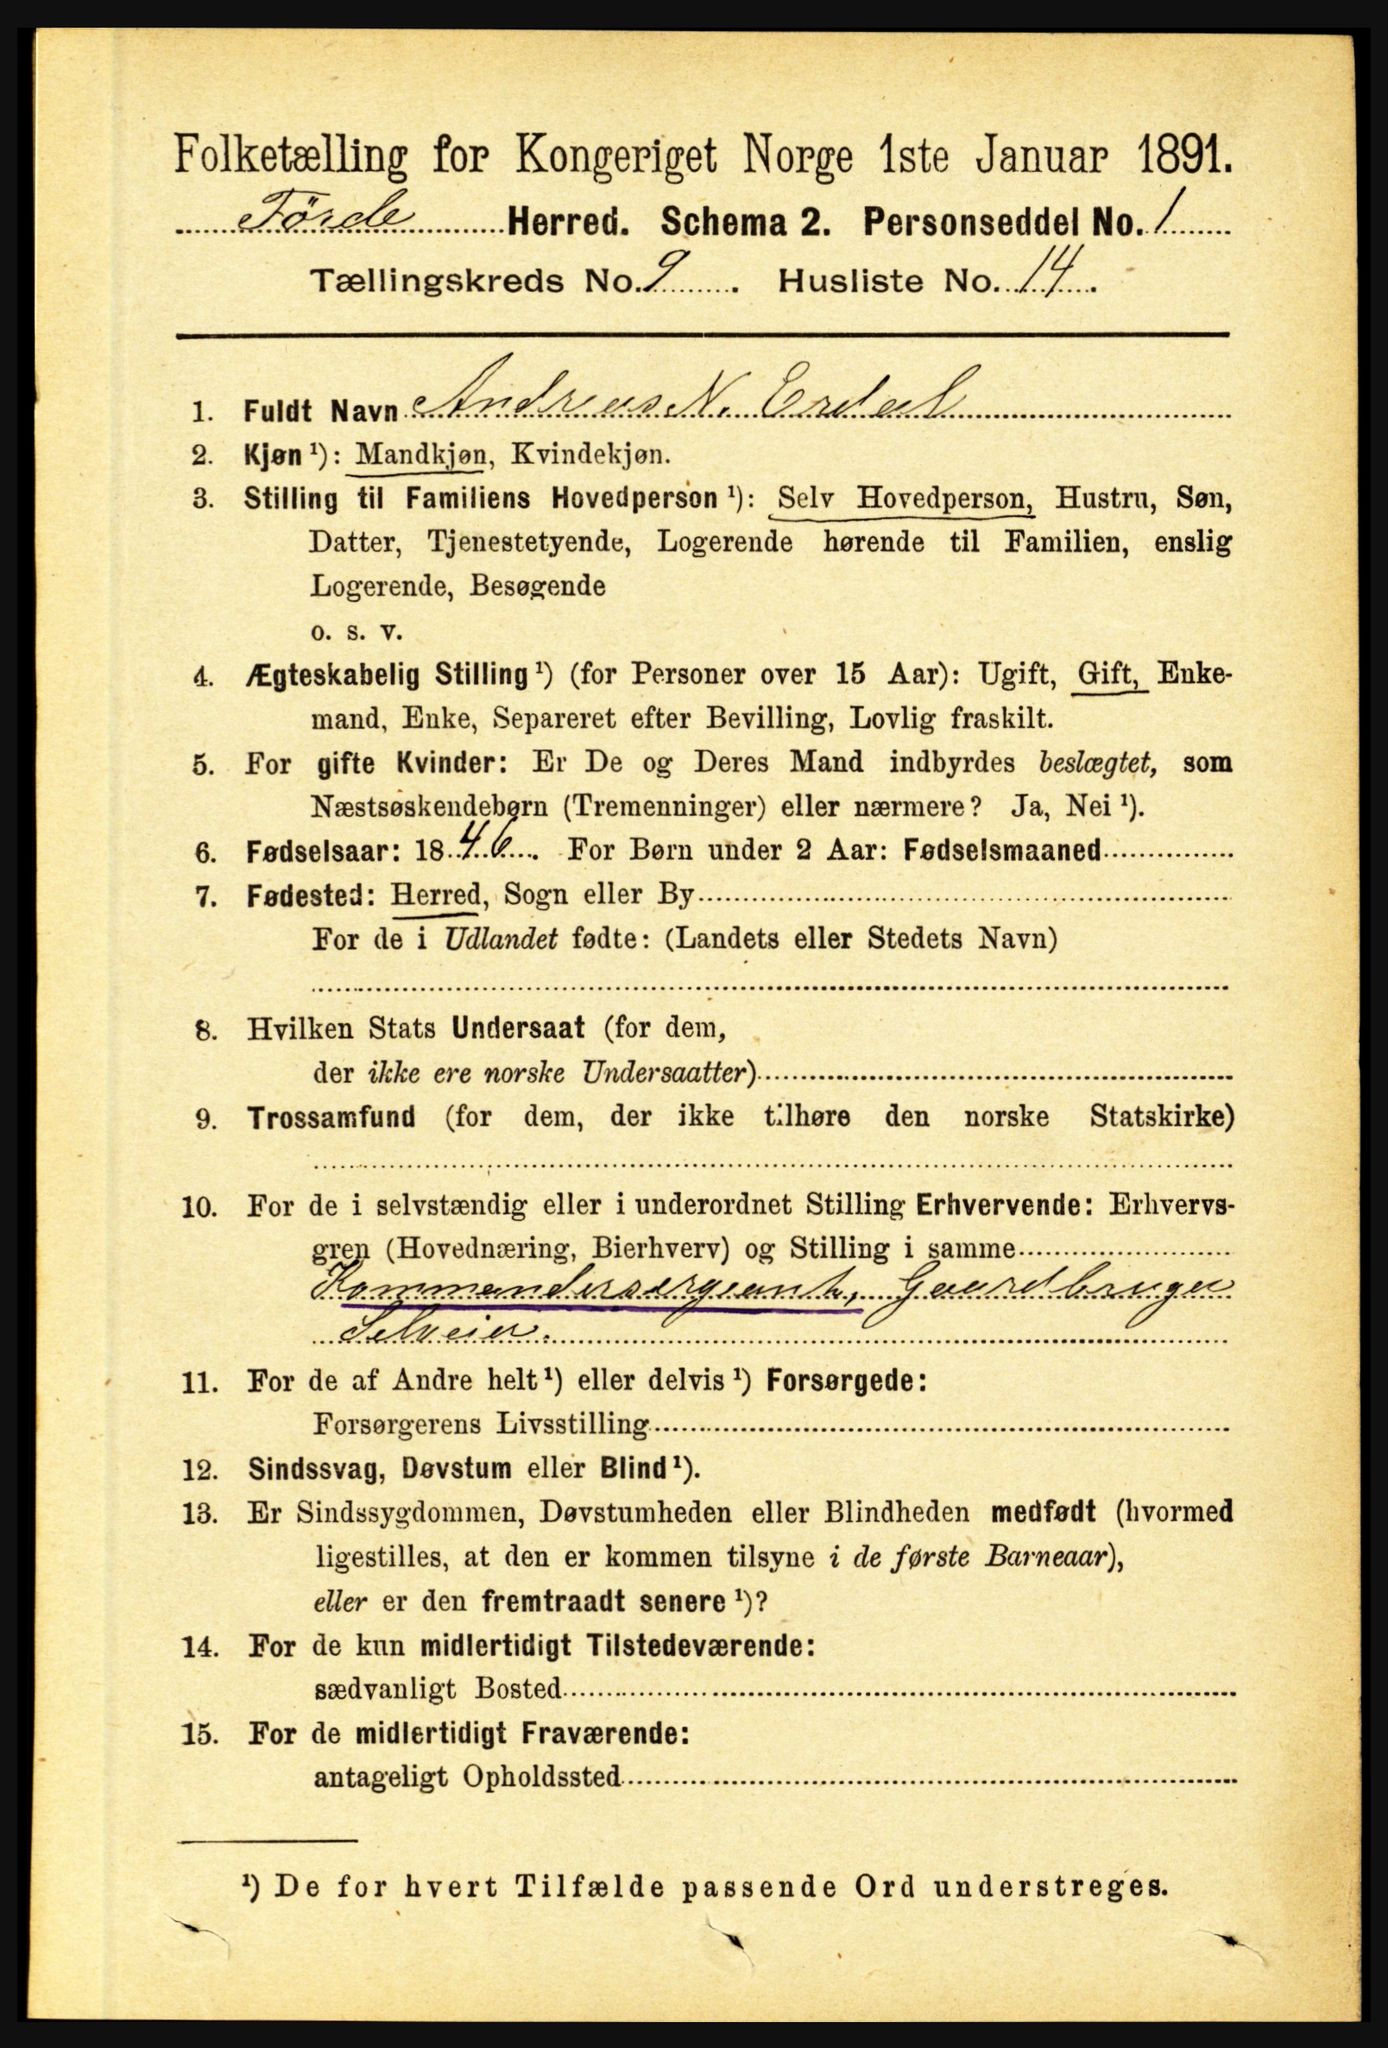 Folketælling for Kongeriget Norge 1ste Januar 1891.
Förde Herred. Schema 2. Personseddel No. 1
Tællingskreds No. 9. Husliste No. 14.
1. Fuldt Navn Andreas N. Erdal
2. Kjøn ¹): Mandkjøn, Kvindekjøn.
3. Stilling til Familiens Hovedperson ¹): Selv Hovedperson, Hustru, Søn,
Datter, Tjenestetyende, Logerende hørende til Familien, enslig
Logerende, Besøgende
o. s. v.
4. Ægteskabelig Stilling ¹) (for Personer over 15 Aar): Ugift, Gift, Enke-
mand, Enke, Separeret efter Bevilling, Lovlig fraskilt.
5. For gifte Kvinder: Er De og Deres Mand indbyrdes beslægtet, som
Næstsøskendebørn (Tremenninger) eller nærmere? Ja, Nei ¹).
6. Fødselsaar: 1846. For Børn under 2 Aar: Fødselsmaaned
7. Fødested: Herred, Sogn eller By
For de i Udlandet fødte: (Landets eller Stedets Navn)
8. Hvilken Stats Undersaat (for dem,
der ikke ere norske Undersaatter)
9. Trossamfund (for dem, der ikke tilhøre den norske Statskirke)
10. For de i selvstændig eller i underordnet Stilling Erhvervende: Erhvervs-
gren (Hovednæring, Bierhverv) og Stilling i samme
Kommandersergeant, Gaardbruger
Selveier.
11. For de af Andre helt ¹) eller delvis ¹) Forsørgede:
Forsørgerens Livsstilling
12. Sindssvag, Døvstum eller Blind ¹).
13. Er Sindssygdommen, Døvstumheden eller Blindheden medfødt (hvormed
ligestilles, at den er kommen tilsyne i de første Barneaar),
eller er den fremtraadt senere ¹)?
14. For de kun midlertidigt Tilstedeværende:
sædvanligt Bosted
15. For de midlertidigt Fraværende:
antageligt Opholdssted
¹) De for hvert Tilfælde passende Ord understreges.